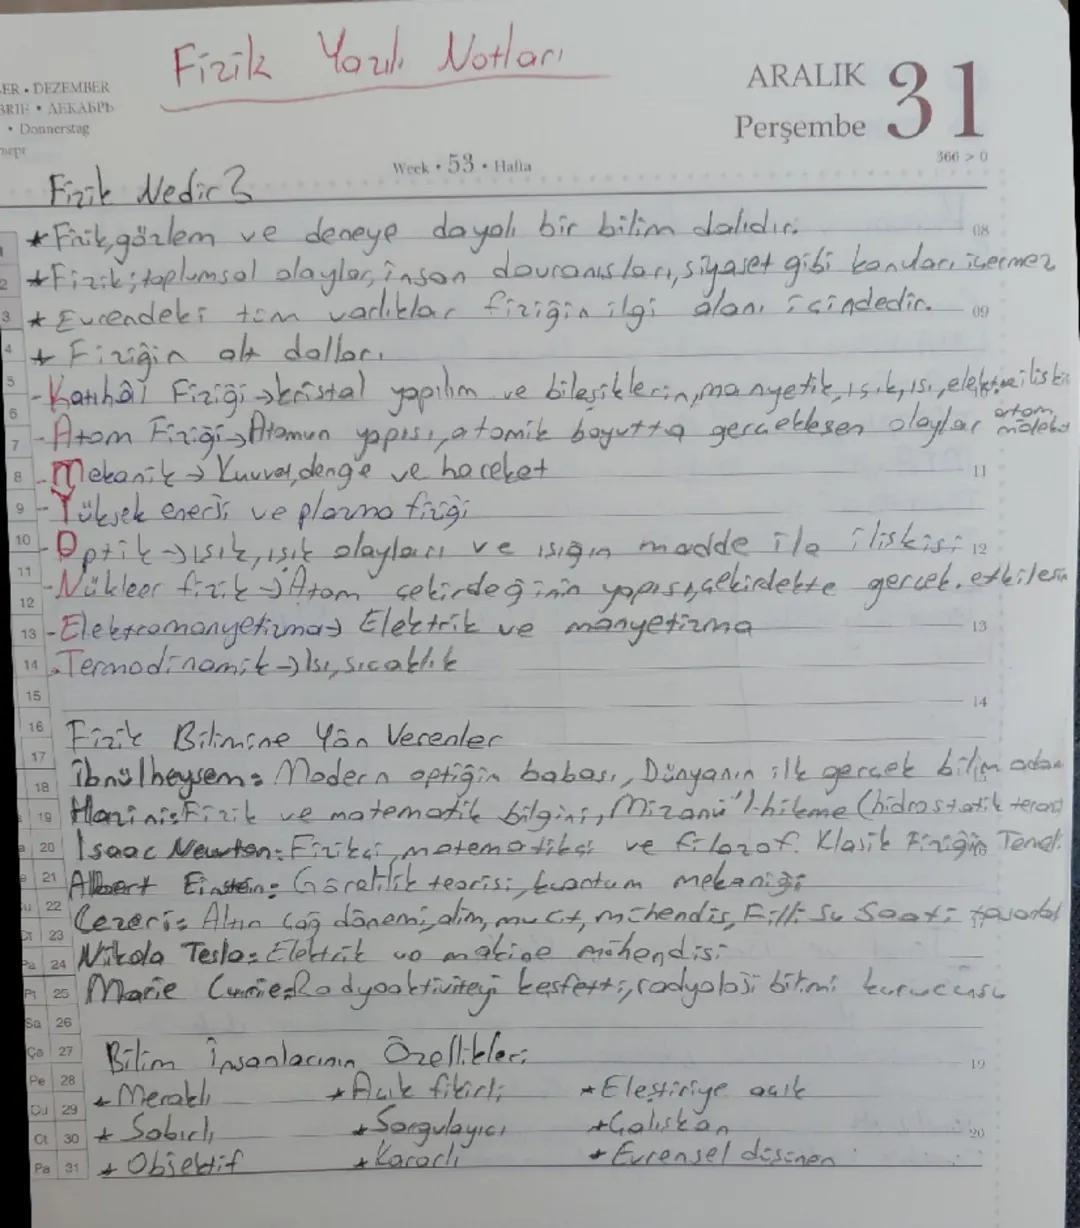 Fizik Yazılı Notları
ER • DEZEMBER
BRE • ДЕКАБРЬ
• Donnerstag
ARALIK 31
Perşembe
366 > 0
Week • 53 • Hafta
Fizik Nedir?
* Fizik, gözlem ve deneye dayalı bir bilim dalıdır. 08
* Fizik; toplumsal olaylar, insan davranışları, siyaset gibi konuları içermez
* Evrendeki tüm varlıklar fiziğin ilgi alanı içindedir. 09
* Fiziğin alt dalları
- Katıhâl Fiziği → kristal yapılım ve bileşiklerin, manyetik, ışık, ısı,
- Atom Fiziği → Atomun yapısı, atomik boyutta gerçekleşen olaylar atom
- Mekanik → Kuvvet, denge ve hareket 11
- Yüksek enerji ve plazma fiziği
- Optik → ışık, ışık olayları ve ışığın madde ile ilişkisi 12
- Nükleer fizik → Atom çekirdeğinin yapısı, çekirdekte gerçek. etkileşim
- Elektromanyetizma → Elektrik ve manyetizma 13
- Termodinamik → Isı, sıcaklık
14
Fizik Bilimine Yön Verenler
İbnülheysem = Modern optiğin babası, Dünyanın ilk gerçek bilim adam
Hazini = Fizik ve matematik bilgini, Mizanü'l-hikme (hidrostatik terazi
Isaac Newton = Fizikçi, matematikçi ve filozof. Klasik Fiziğin Temel.
Albert Einstein = Görelilik teorisi, kuantum mekaniği
Cezeri = Altın çağ dönemi, alim, mucit, mühendis, Filli Su Saati
Nikola Tesla = Elektrik ve makine mühendisi
Marie Curie = Radyoaktiviteyi keşfetti, radyoloji bilimi kurucusu
Bilim İnsanlarının Özellikleri 19
* Meraklı * Açık fikirli * Eleştiriye açık
* Sabırlı * Sorgulayıcı * Çalışkan 20
* Objektif * Kararlı * Evrensel düşünen
1
2
3
4
5
6
7
8
9
10
11
12
13
14
15
16
17
18
19
20
21
22
23
Pa 24
Pt 25
Sa 26
Ça 27
Pe 28
Cu 29
Ct 30
Pa 31